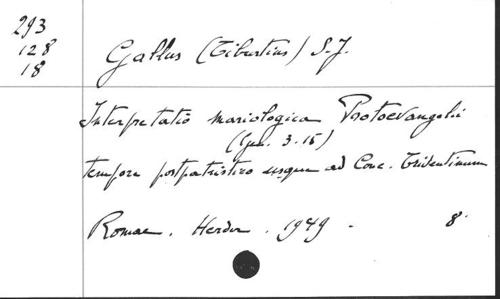 293
128
18
Gallus (Tiburtius) S.J.
Interpretatio mariologica Protoevangelii
(Gen. 3.15)
tempore postpatristico usque ad Conc. Tridentinum
Romae. Herder. 1949. 8°